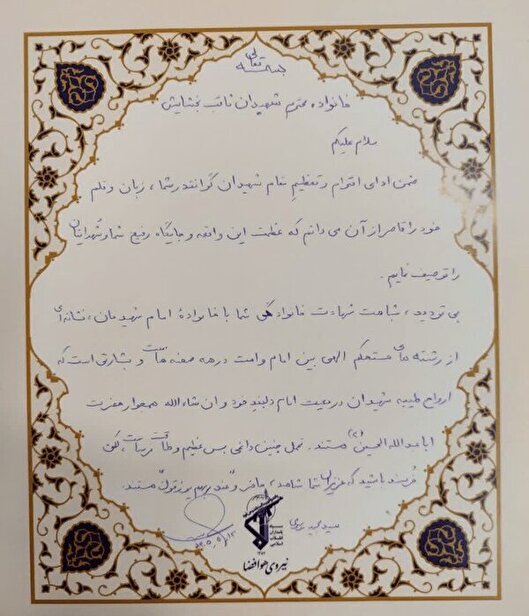 بسمه تعالی
خانواده محترم شهیدان نائب بخشایش
سلام علیکم
ضمن ادای احترام و تعظیم مقام شهیدان گرانقدر شما، زبان و قلم
خود را قاصر از آن می دانم که عظمت این واقعه و جایگاه رفیع شما و شهدایتان
را توصیف نمایم.
بی تردید، شباهت شهادت خانوادگی شما با خانوادهٔ امام شهیدمان، نشانه‌ای
از رشته های مستحکم الهی بین امام و امت در همه صحنه هاست و بشارتی است که
ارواح طیبه شهیدان در معیت امام دلبند خود و ان شاءالله همجوار حضرت
اباعبدالله الحسین (ع) هستند. تحمل چنین داغی بس عظیم و طاقت فرساست، لکن
خرسند باشید که عزیزان شما شاهد، حاضر و "عند ربهم یرزقون" هستند.
سپاه پاسداران انقلاب اسلامی
نیروی هوافضا